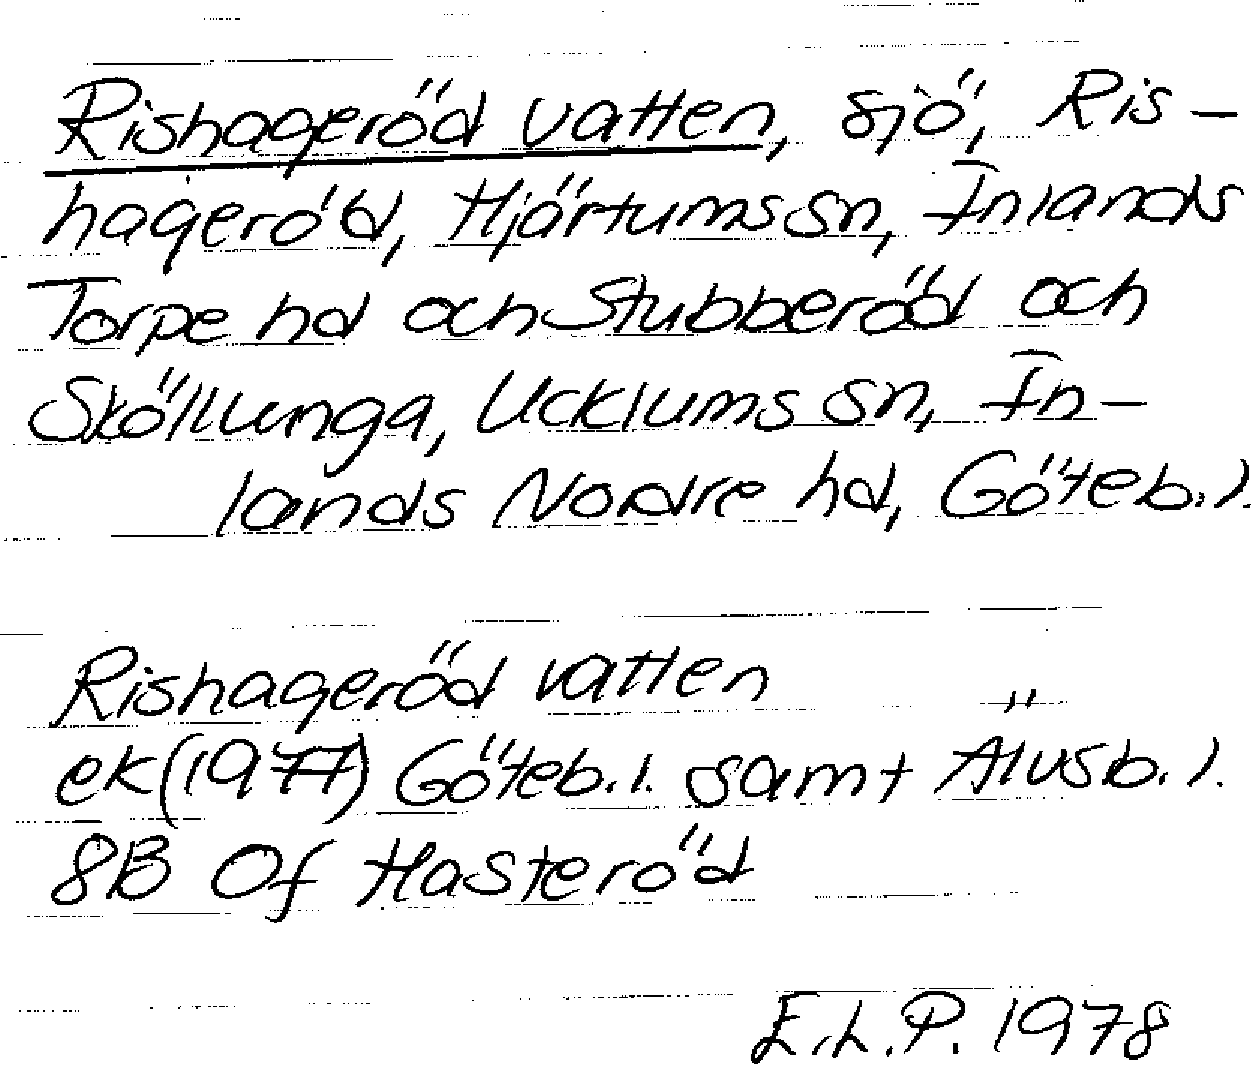 Rishageröd vatten, sjö, Ris-
hageröd, Hjärtums sn, Inlands
Torpe hd och Stubberöd och
Sköllunga, Ucklums sn, In-
lands Nordre hd, Göteb. l.
Rishageröd vatten
ek (1977) Göteb. l. samt Älvsb. l.
8B 0f Hasteröd
E.L.P. 1978